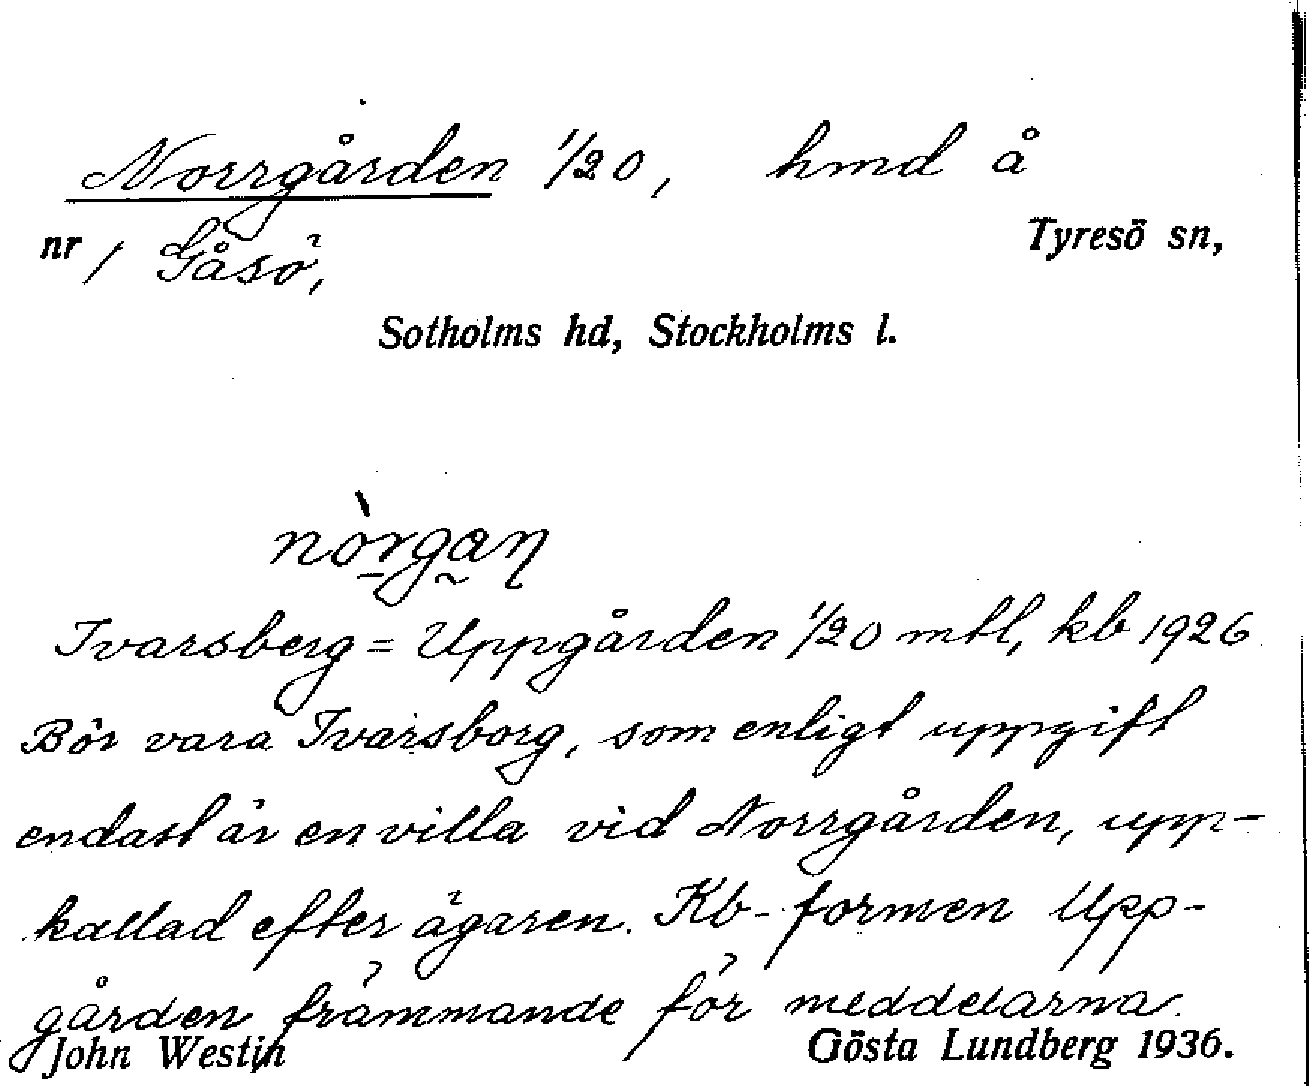 Norrgården 1/20, hmd å
nr 1 Gåsö, Tyresö sn,
Sotholms hd, Stockholms l.
nòrgan
Ivarsberg = Uppgården 1/20 mtl, kb 1926
Bör vara Ivarsborg, som enligt uppgift
endast är en villa vid Norrgården, upp-
kallad efter ägaren. Kb-formen Upp-
gården främmande för meddelarna.
John Westin Gösta Lundberg 1936.